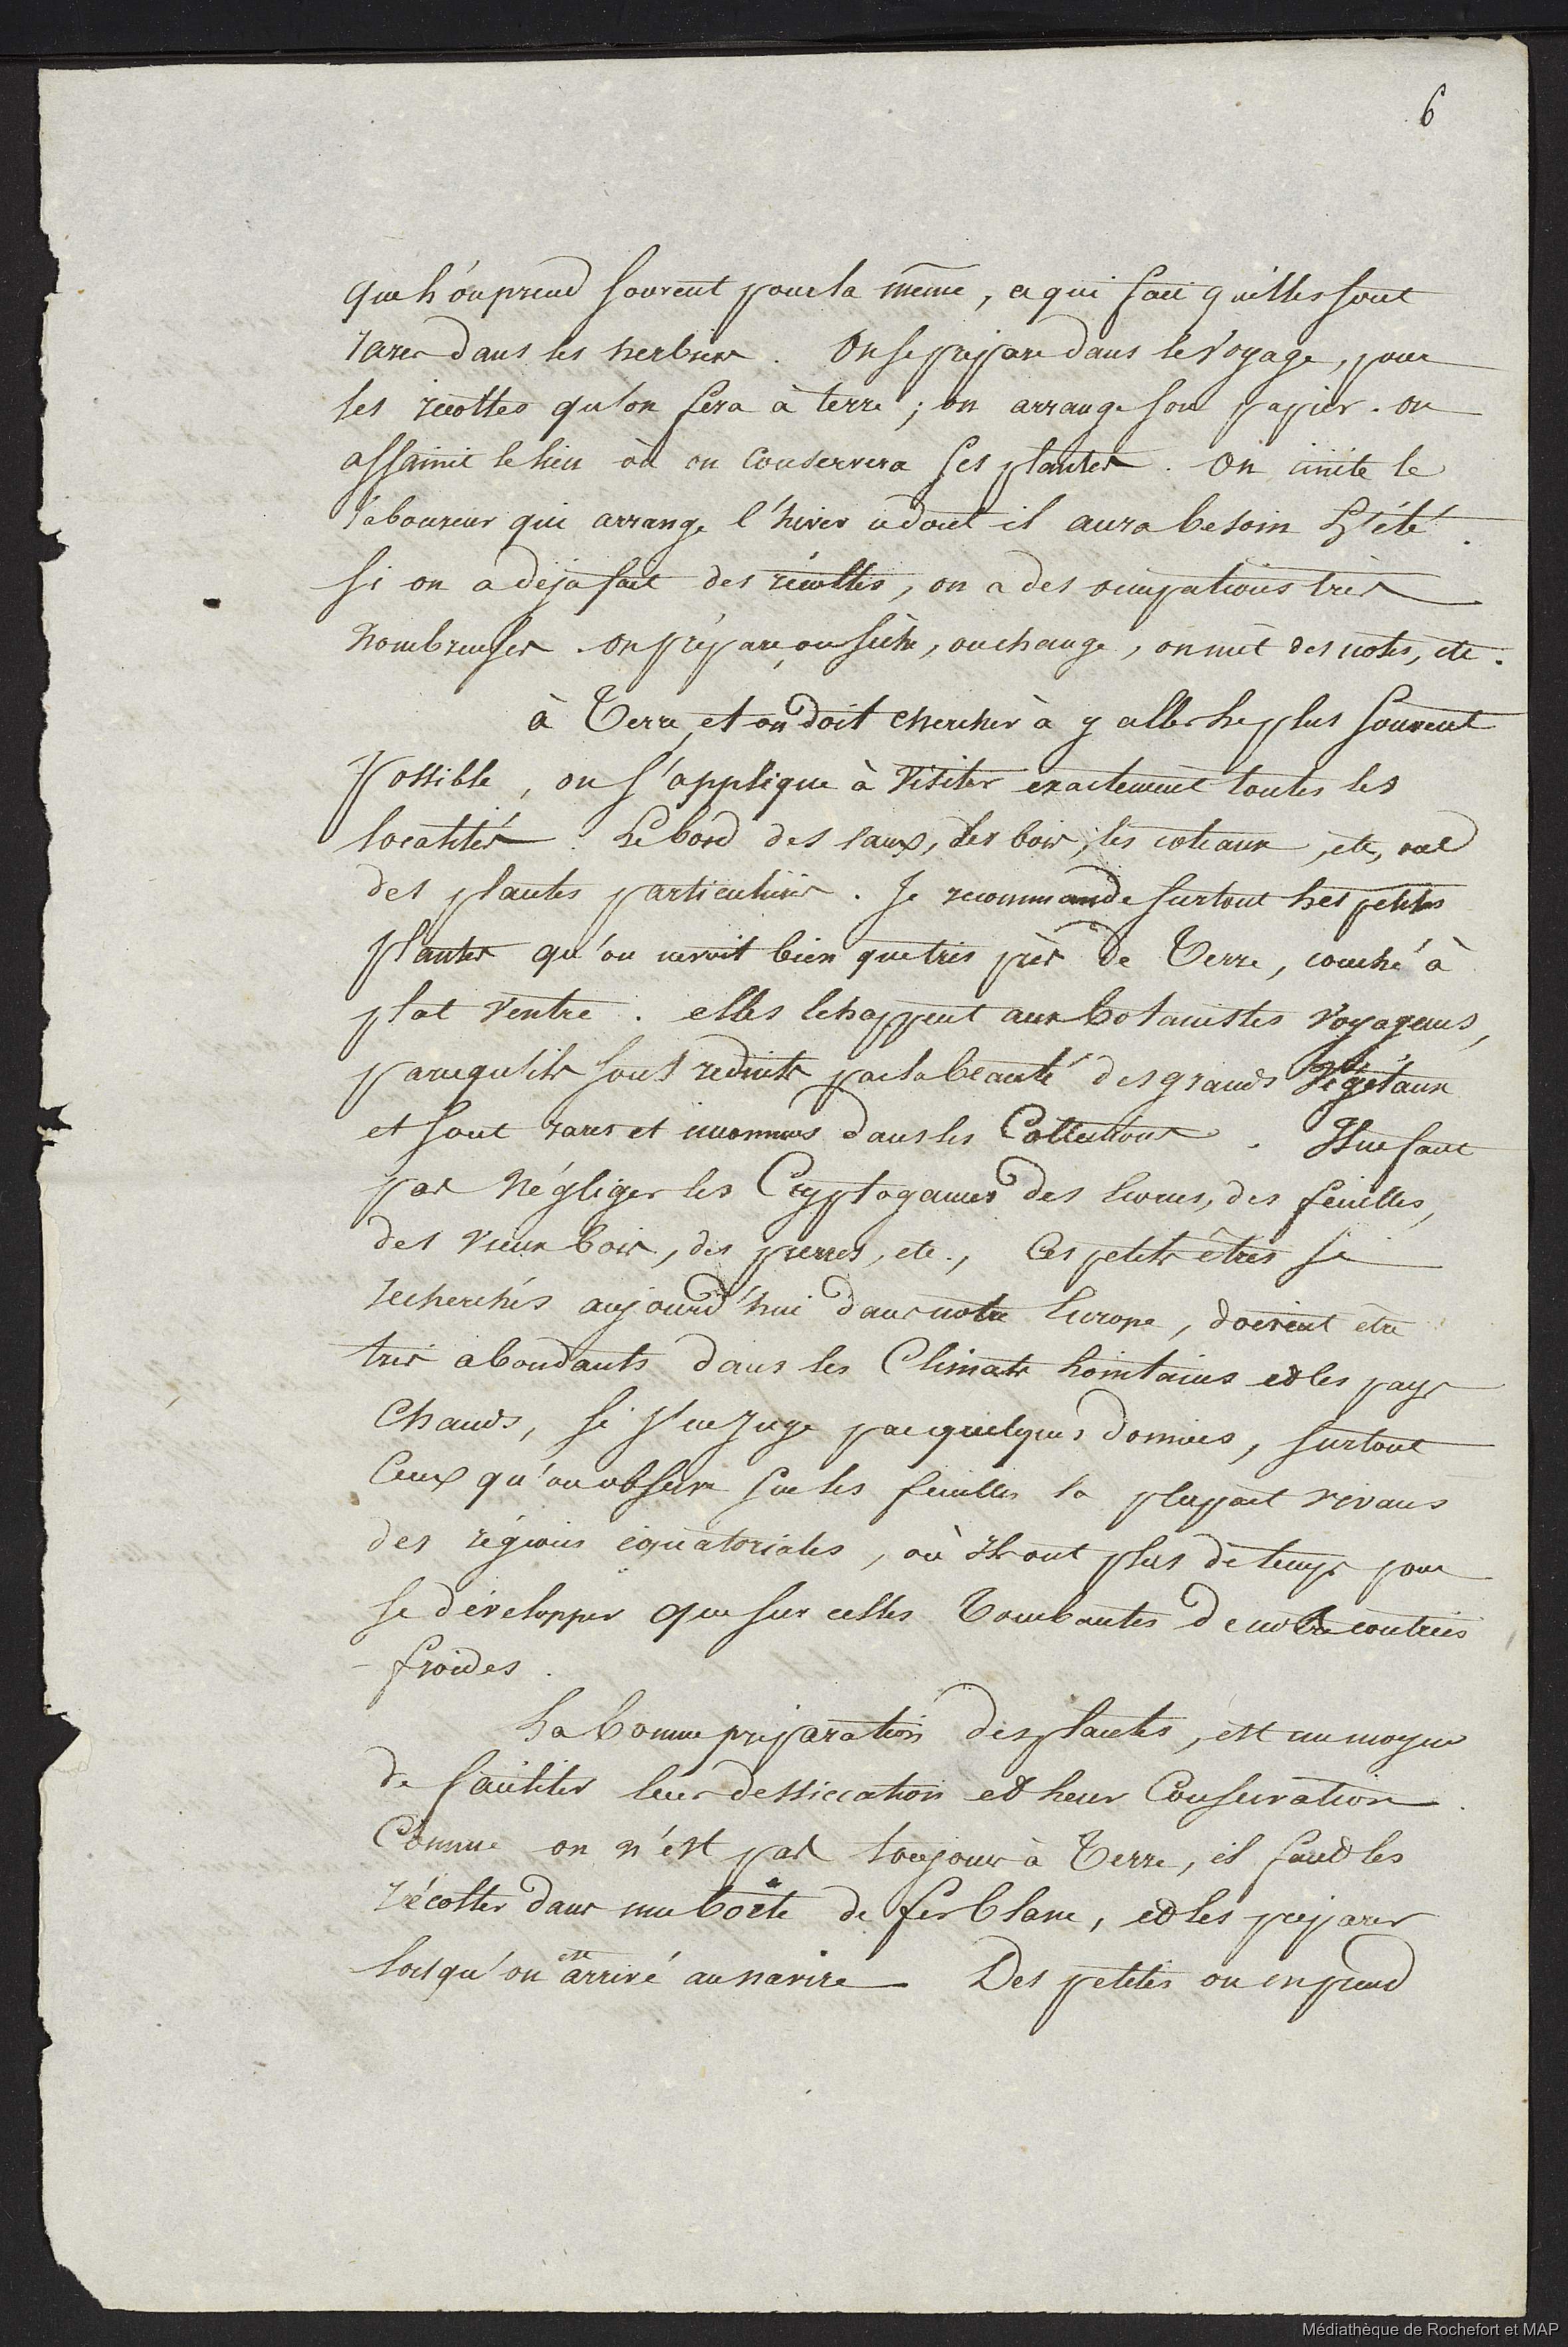 6
que l'on prend souvent pour la même, ce qui fait qu'elles sont
rares dans les herbiers. On se prépare dans le voyage, pour
les récoltes qu'on fera à terre ; on arrange son papier. on
assainit le lieu où on conservera ses plantes. On imite le
laboureur qui arrange l'hiver ce dont il aura besoin L'été.
Si on a déjà fait des récoltes, on a des occupations très
nombreuses. On prépare, on sèche, on change, on met des notes, etc.
à Terre, et on doit chercher à y aller le plus souvent
possible, on s'applique à visiter exactement toutes les
localités. Le bord des eaux, des bois, les coteaux, etc,
des plantes particulières. Je recommande surtout les petites
plantes qu'on ne voit bien que très près de Terre, couché à
plat ventre. elles échappent aux botanistes voyageurs,
parcequ'ils sont séduits par la beauté des grands Végétaux
et sont rares et inconnues dans les Collections. Il ne faut
pas négliger les Cryptogames des écorces, des feuilles,
des vieux bois, des pierres, etc., Ces petits êtres si
recherchés aujourd'hui dans notre Europe, doivent être
très abondants dans les Climats lointains et les pays
Chauds, si j'en juge par quelques données, surtout
Ceux qu'on observe sur les feuilles la plupart vivaces
des régions équatoriales, où ils ont plus de temps pour
se développer que sur celles Tombantes de notre contrées
froides.
La bonne préparation des plantes, est un moyen
de faciliter leur dessiccation et leur Conservation.
Comme on n'est pas toujours à Terre, il faut les
récolter dans une boëte de fer blanc, et les préparer
lorsqu'on est arrivé au navire Des petites on en prend
Médiathèque de Rochefort et MAP